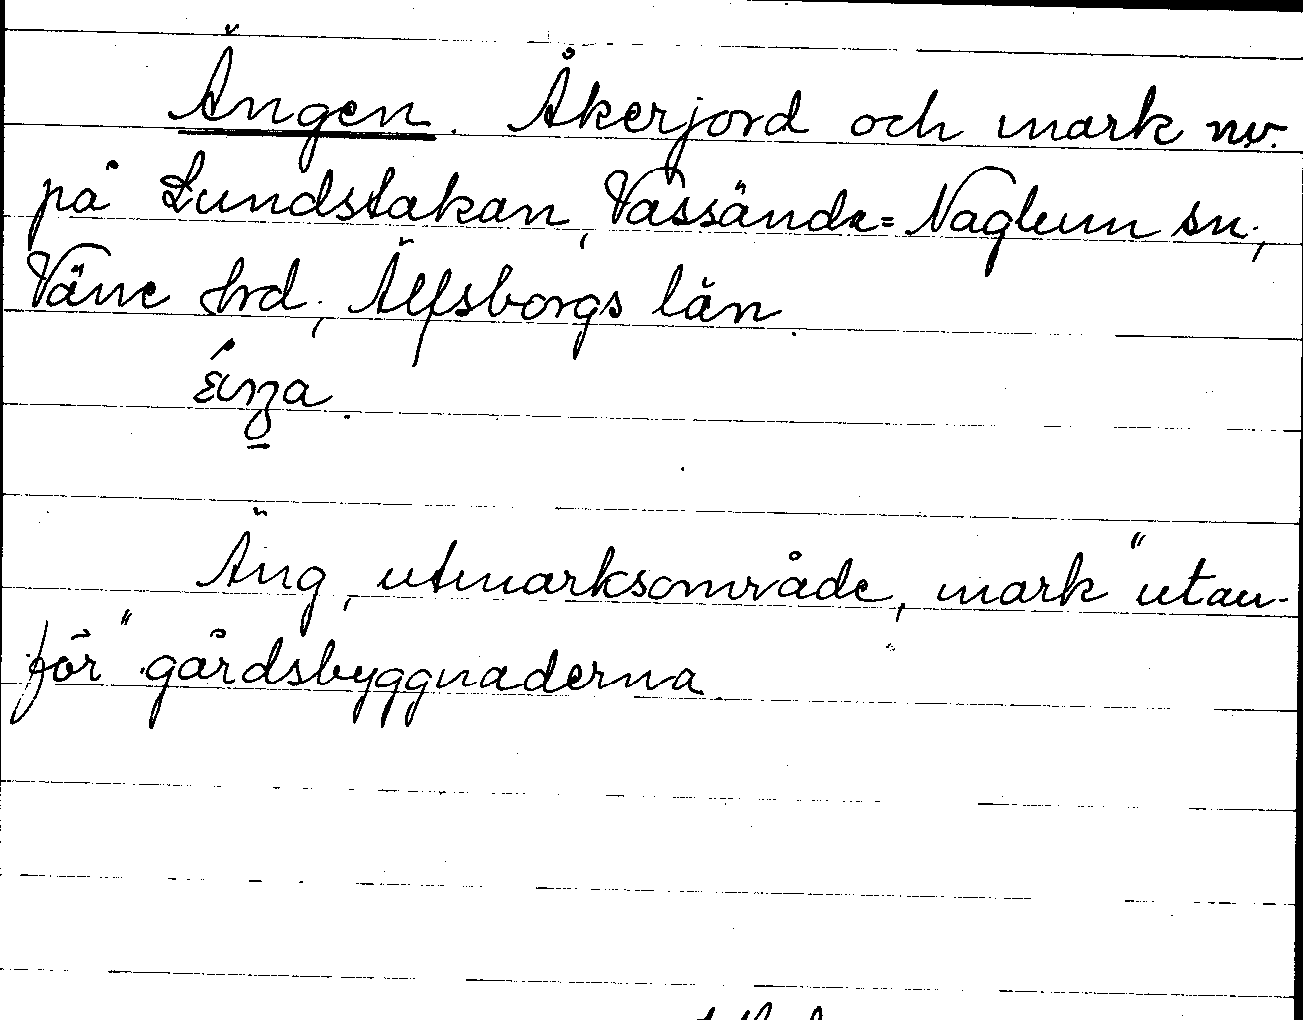 Ängen. Åkerjord och mark nv.
på Lundstakan, Vassända=Naglum sn,
Väne hrd, Älfsborgs län.
Äng, utmarksområde, mark "utan-
för" gårdsbyggnaderna